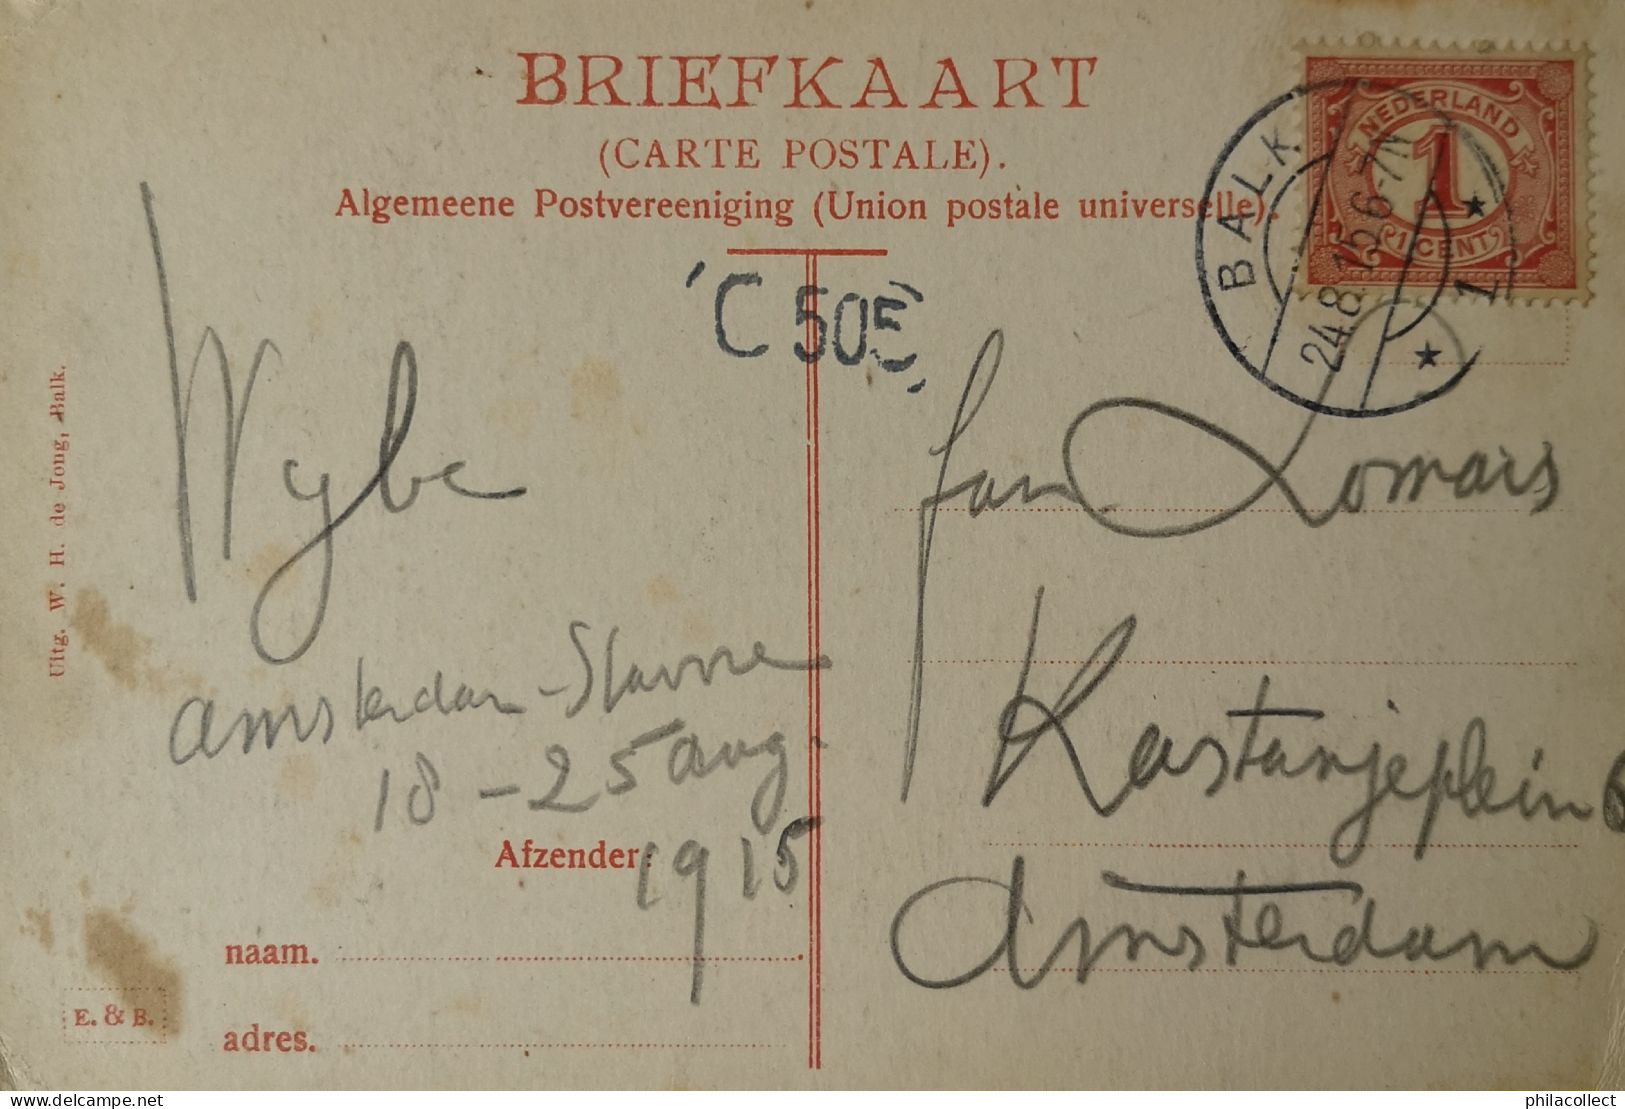 BRIEFKAART
(CARTE POSTALE).
Algemeene Postvereeniging (Union postale universelle).
NEDERLAND
1
1 CENT
BALK
24.8.15 6-7N
1
C 505
Wybe
Amsterdam - Stavore
18 - 25 Aug.
1915
Afzender:
naam.
adres.
Uitg. W. H. de Jong, Balk.
E. & B.
Jan Lomars
Kastanjeplein 6
Amsterdam
delcampe.net
philacollect